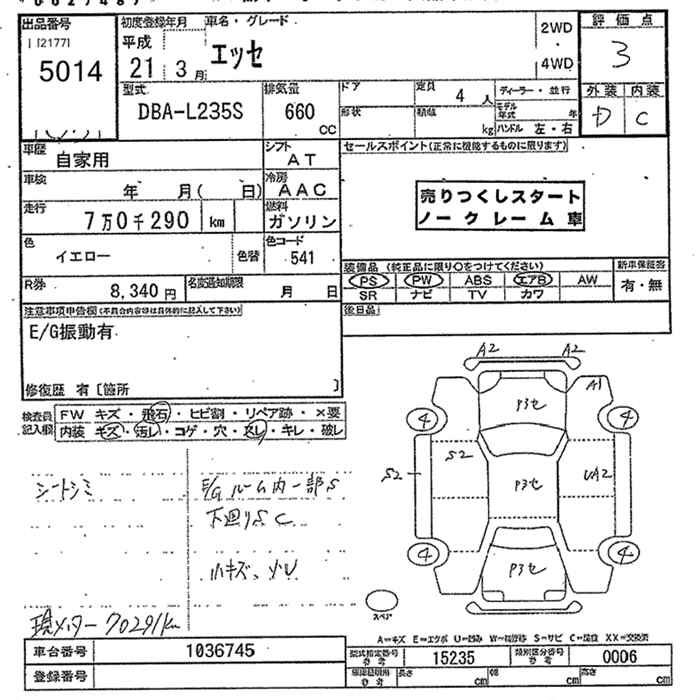 出品番号
初度登録年月
車名・グレード
評価点
[2177]
5014
平成
21年 3月
エッセ
2WD
4WD
3
型式
DBA-L235S
排気量
660
cc
ドア
定員
4人
ディーラー・並行
形状
積載
kg
モデル年式
年
ハンドル 左・右
外装
内装
D
C
車歴
自家用
シフト
AT
セールスポイント(正常に機能するものに限ります)
車検
年 月( 日)
冷房
AAC
売りつくしスタート
ノークレーム車
走行
7万0千290 km
燃料
ガソリン
色
イエロー
色替
色コード
541
装備品(純正品に限り○をつけてください)
新車保証書
PS
PW
ABS
エアB
AW
有・無
SR
ナビ
TV
カワ
R券
8,340円
名変通知期限
月 日
後日品
注意事項申告欄(不具合内容は具体的に記入して下さい)
E/G振動有
修復歴 有[箇所 ]
検査員記入欄
FW キズ・飛石・ヒビ割・リペア跡・×要
内装 キズ・汚レ・コゲ・穴・スレ・キレ・破レ
シートシミ
E/Gルーム内一部S
下回りSC
小キズ、小U
現メーター70291km
A2
A2
A1
P3セ
4
4
S2
S2
P3セ
UA2
4
4
P3セ
スペア
A=キズ E=エクボ U=凹み W=補修跡 S=サビ C=腐蝕 XX=交換済
車台番号
1036745
登録番号
型式指定番号
参考
15235
類別区分番号
参考
0006
参考
長さ
cm
幅
cm
高さ
cm